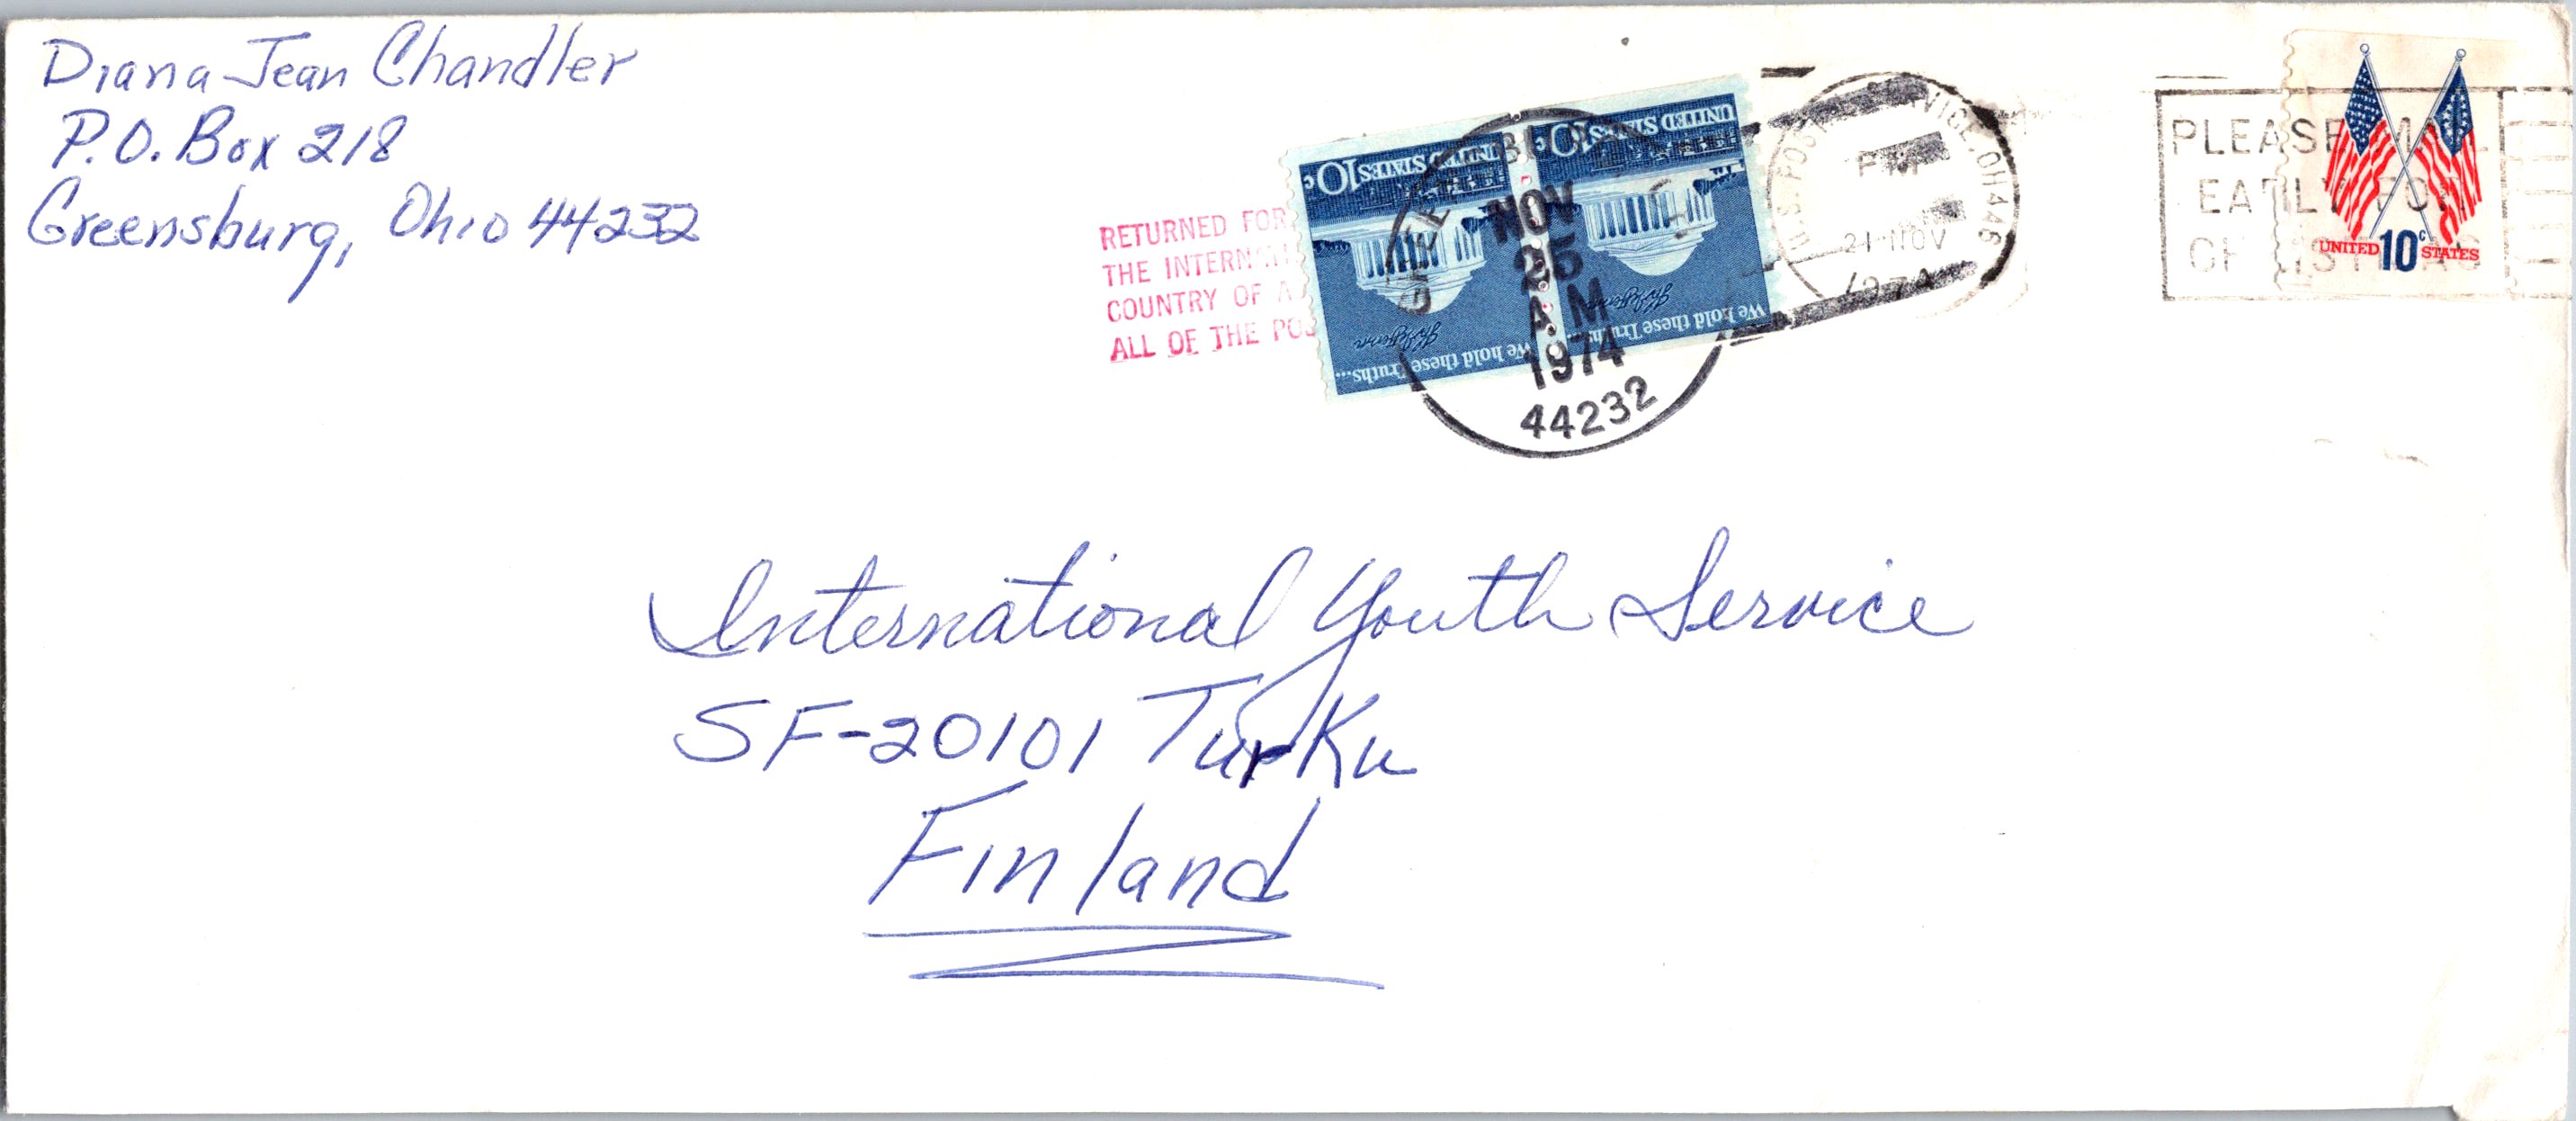 Diana Jean Chandler
P.O. Box 218
Greensburg, Ohio 44232
RETURNED FOR
THE
COUNTRY OF
ALL OF THE
UNITED STATES 10c
We hold these Truths...
UNITED STATES 10c
We hold these Truths...
NOV
25
AM
1974
44232
U.S. OH 446
PM
21 NOV
1974
PLEASE
EARLY FOR
UNITED 10c STATES
International Youth Service
SF-20101 Turku
Finland